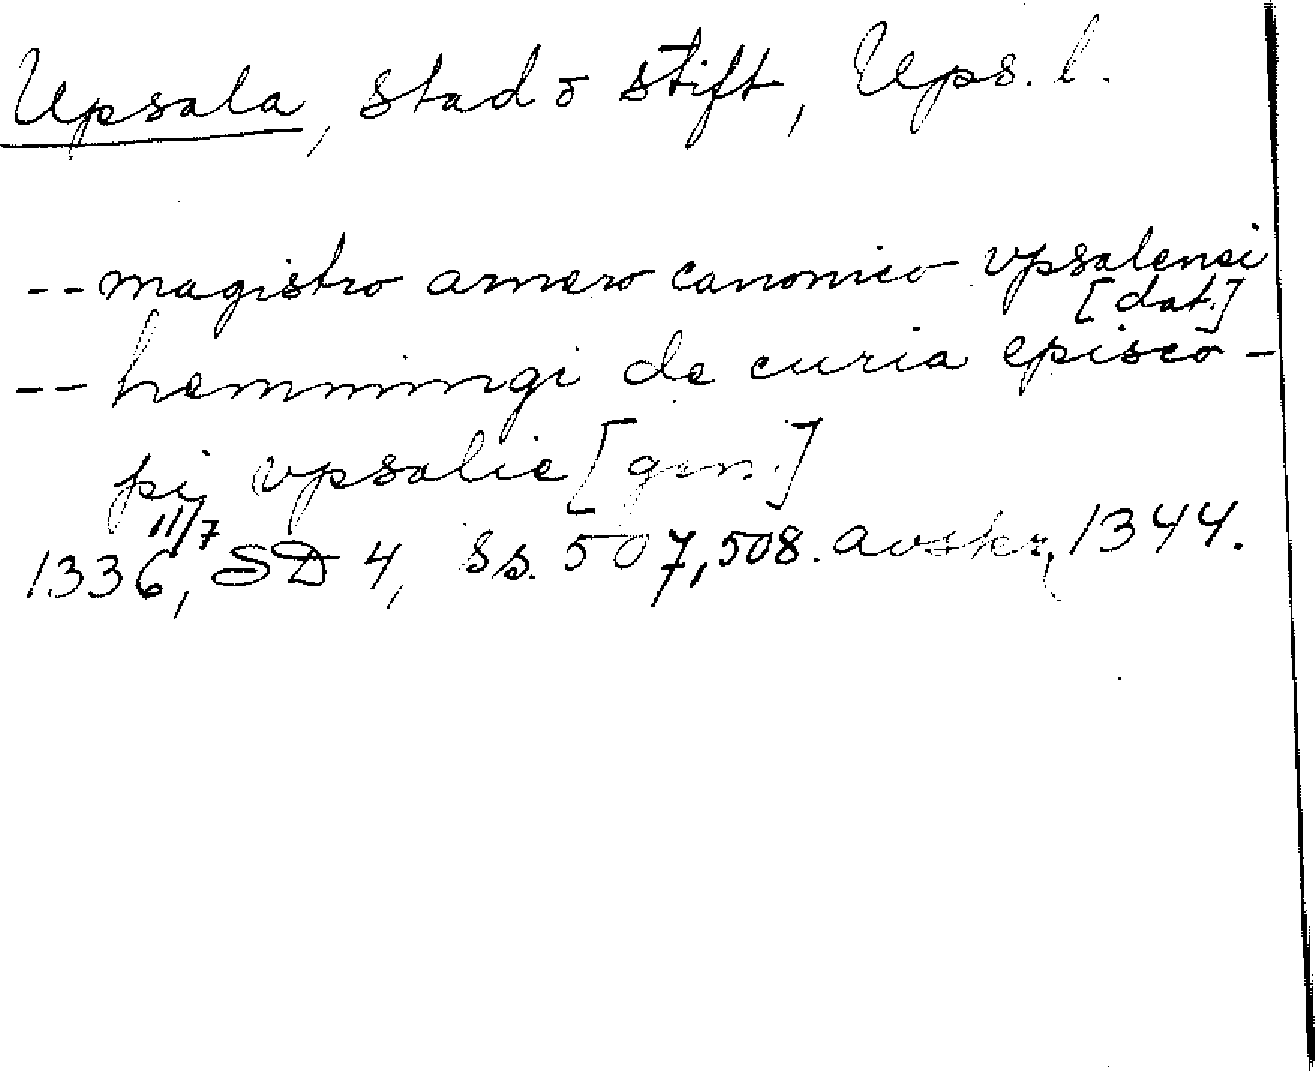 Upsala, stad o stift, Ups. l.
-- magistro arnero canonico vpsalensi
[dat.]
-- hemmingi de curia episco-
pi vpsalie [gen.]
1336, 11/7 SD 4, ss. 507, 508. avskr. 1344.